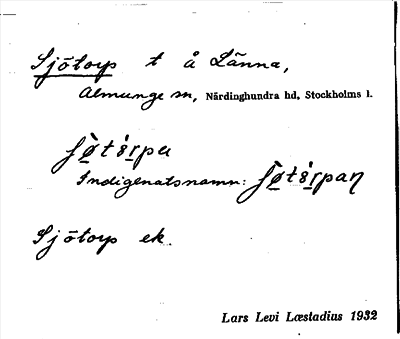 Sjötorp t å Länna,
Almunge sn, Närdinghundra hd, Stockholms l.
Indigenatsnamn:
Sjötorp ek.
Lars Levi Læstadius 1932